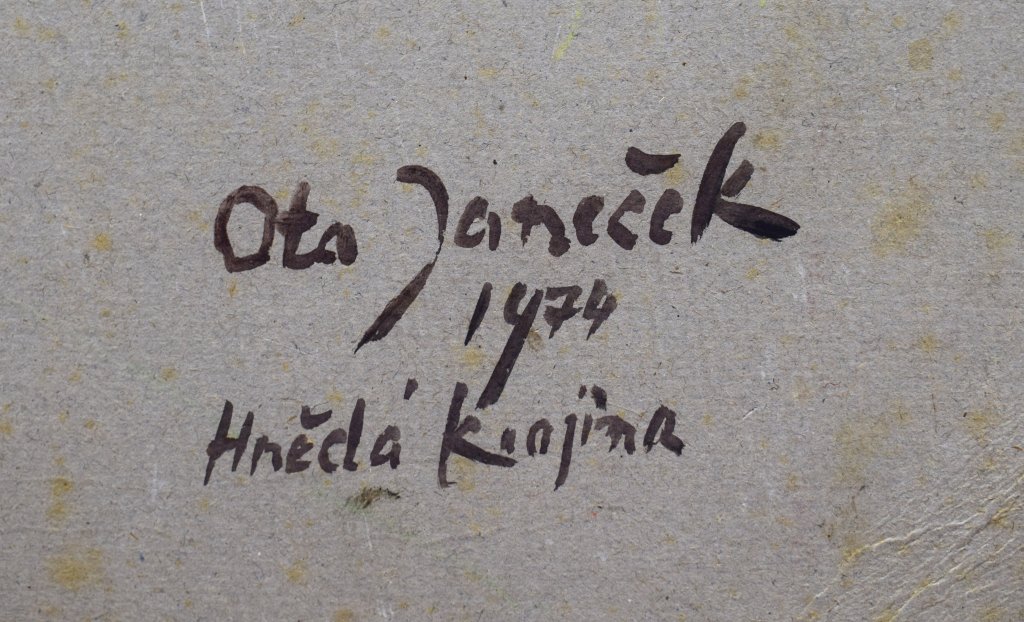 Ota Janeček
1974
Hnědá Krajina